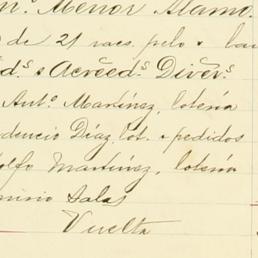 Menor Alamo.
de 21 racs. pelo +
ds. a Acreeds. Divers.
Anto. Martínez, lotería
dencio Díaz, lot. + pedidos
olfo Martínez, lotería
Salas
Vuelta